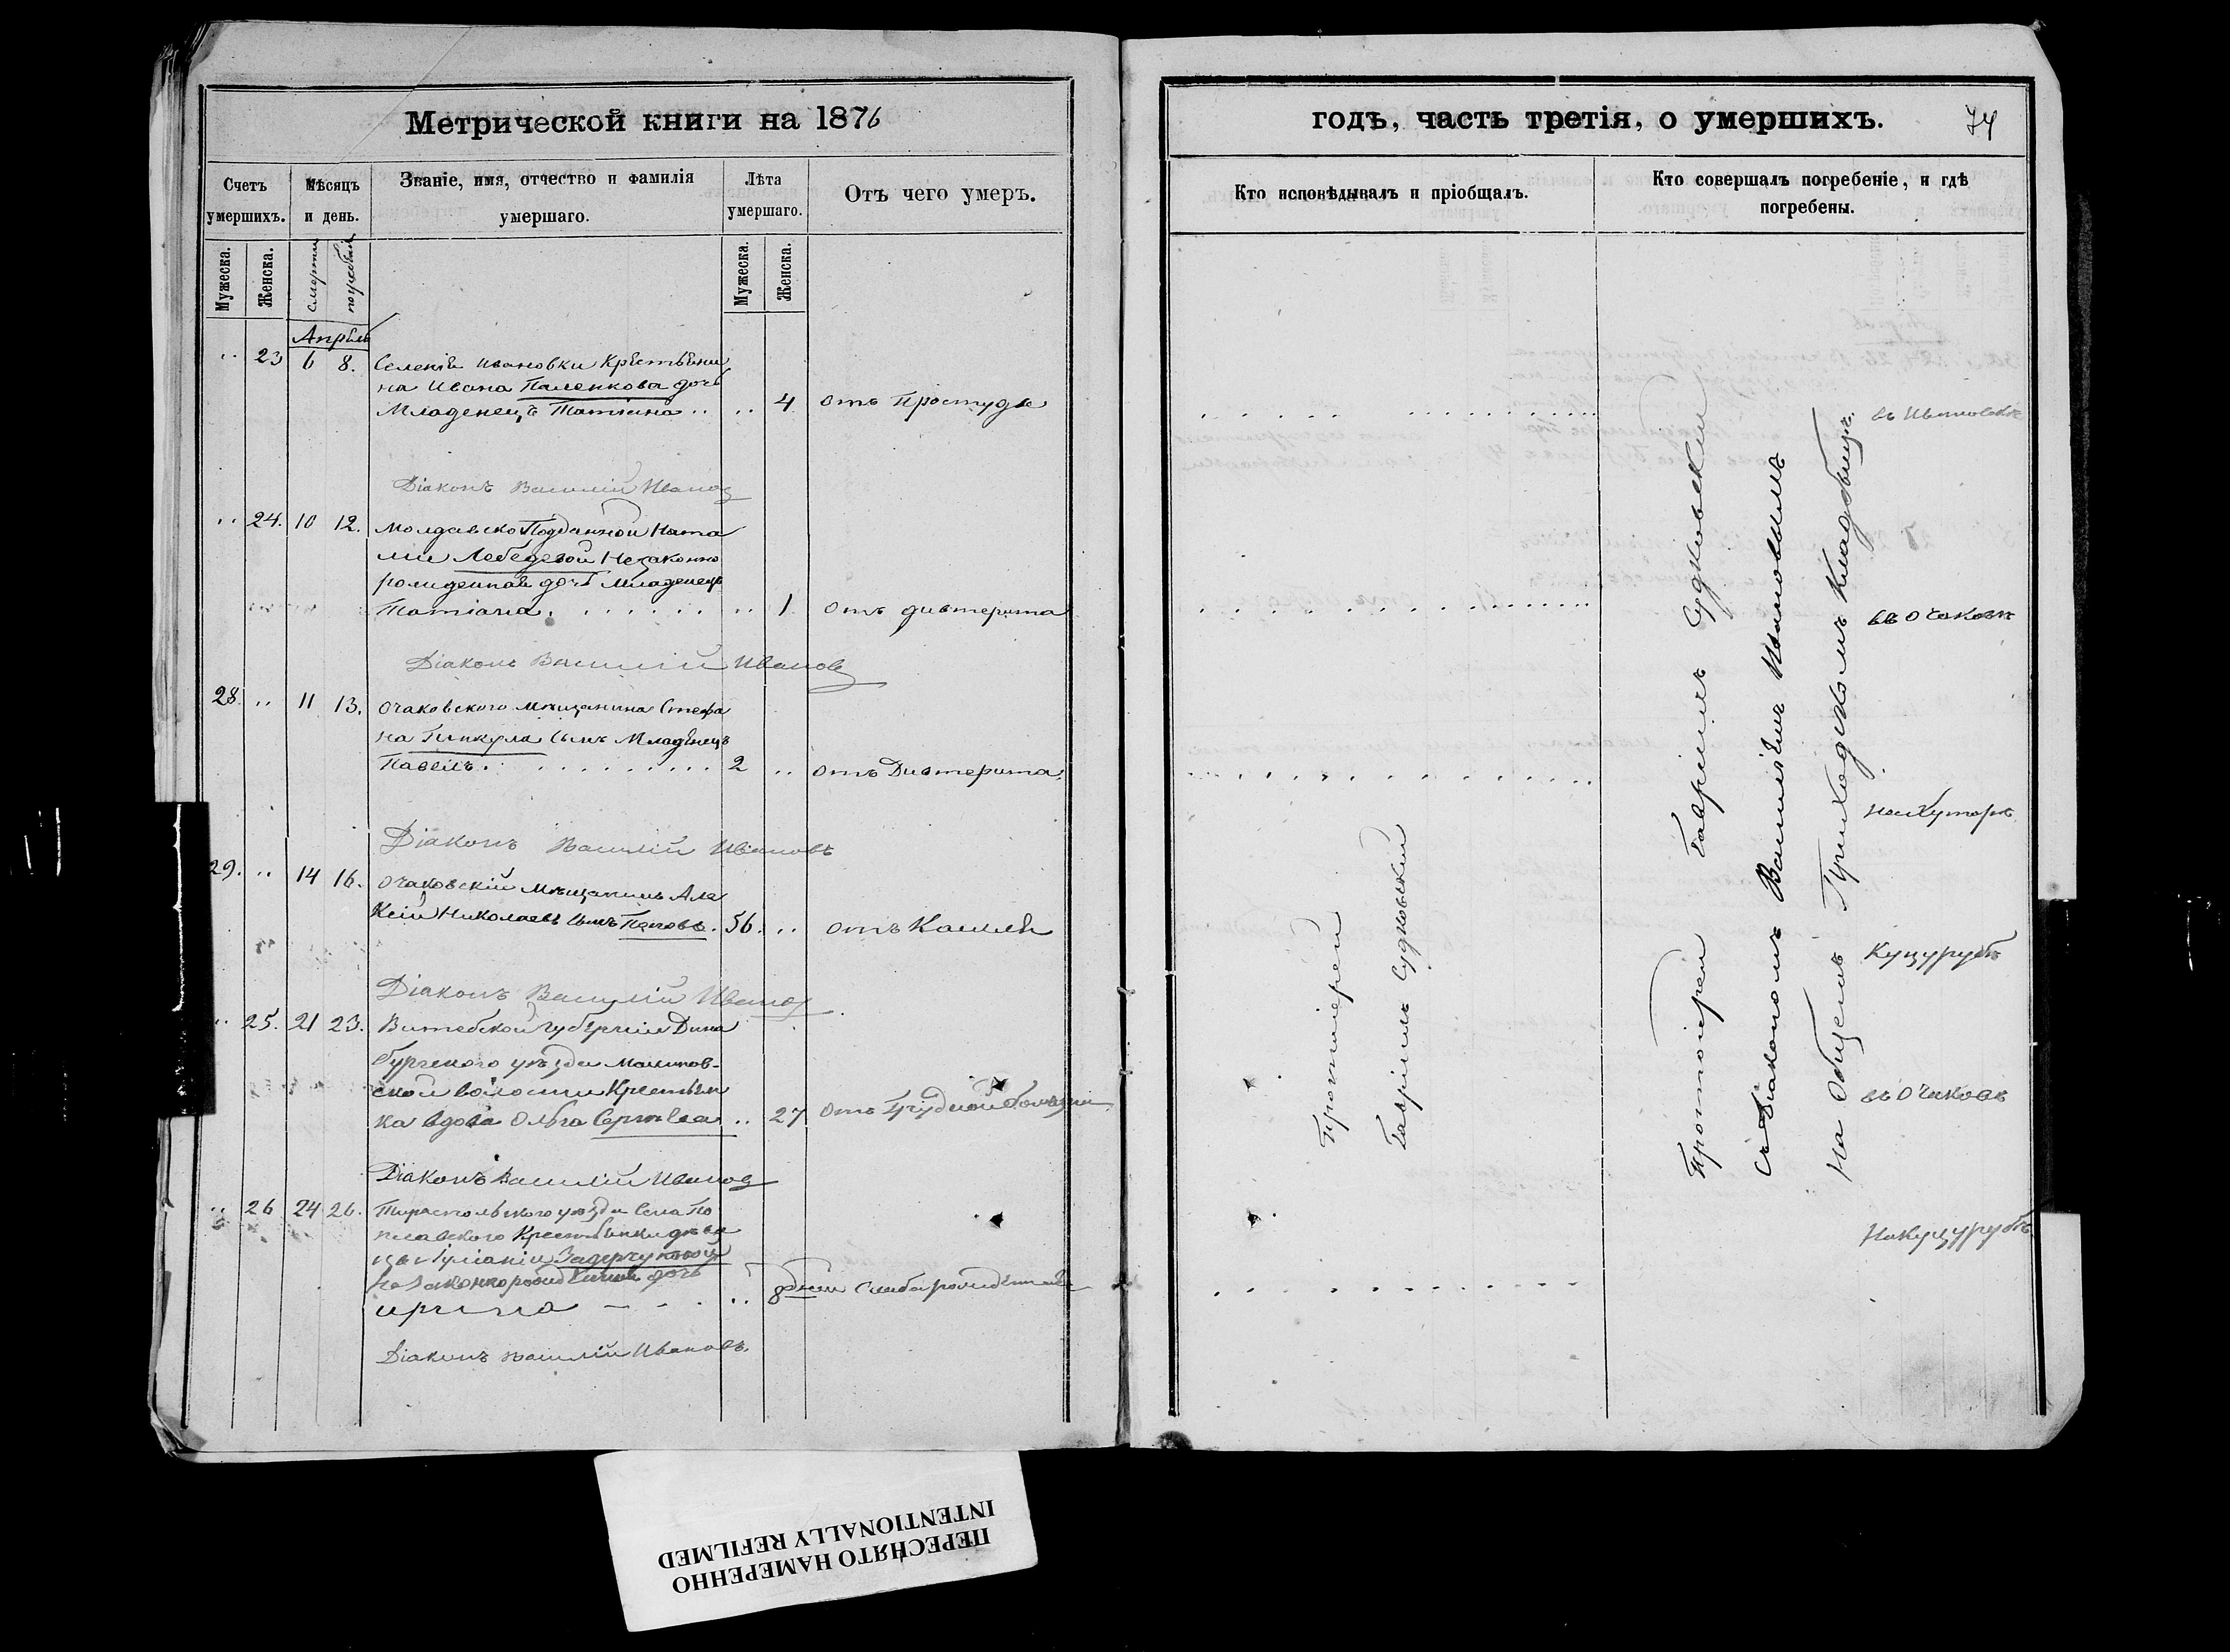 Метрической книги на 1876
Счетъ умершихъ.
Мѣсяцъ и день.
Званіе, имя, отчество и фамилія умершаго.
Лѣта умершаго.
Отъ чего умеръ.
Мужеска.
Женска.
смерти
погребен.
Мужеска.
Женска.
Апрель
.. 23 6 8. Селенія Ивановки Крестьяни
на Ивана Паленкова дочь
Младенецъ Татіана .. .. 4 отъ простуды
Діаконъ Василій Иванов
.. 24. 10 12. Молдавско Подданной Ната
ліи Лебедевой Незаконно
рожденная дочь Младенецъ
Татіана. .. 1 отъ дифтерита
Діаконъ Василій Иванов
28. .. 11 13. Очаковского мѣщанина Стефа
на Гинкула сынъ Младенецъ
Павелъ. 2 .. отъ Дифтерита.
Діаконъ Василій Ивановъ
29. .. 14 16. Очаковскій Мѣщанинъ Але
ксій Николаевъ сынъ Поповъ. 56. .. отъ Кашля
Діаконъ Василій Иванов
.. 25. 21 23. Витебской губерніи Дина
бургского уѣзда Малинов-
ской волости Крестьян
ка вдова Ольга Сергѣева .. 27 отъ Грудной болѣзни
Діаконъ Василій Иванов
.. 26 24 26. Тираспольского уѣзда села По
Крестьянки дѣви
цы Іуліаніи
Незаконнорожденная дочь
ирина - - . .. 8 дней Слаборожденная
Діаконъ Василій Ивановъ.
годъ, часть третія, о умершихъ.
74
Кто исповѣдывалъ и пріобщалъ.
Кто совершалъ погребеніе, и гдѣ погребены.
Протоіерей
Гавріилъ Судковскій
Протоіерей Гавріилъ Судковский
Съ Діакономъ Василіемъ Ивановымъ
На общемъ Приходскомъ Кладбищѣ.
въ Ивановкѣ
въ Очаковѣ
на Хуторѣ
Куцурубъ
въ Очаковѣ
На Куцурубѣ
ПЕРЕСНЯТО НАМЕРЕННО
INTENTIONALLY REFILMED